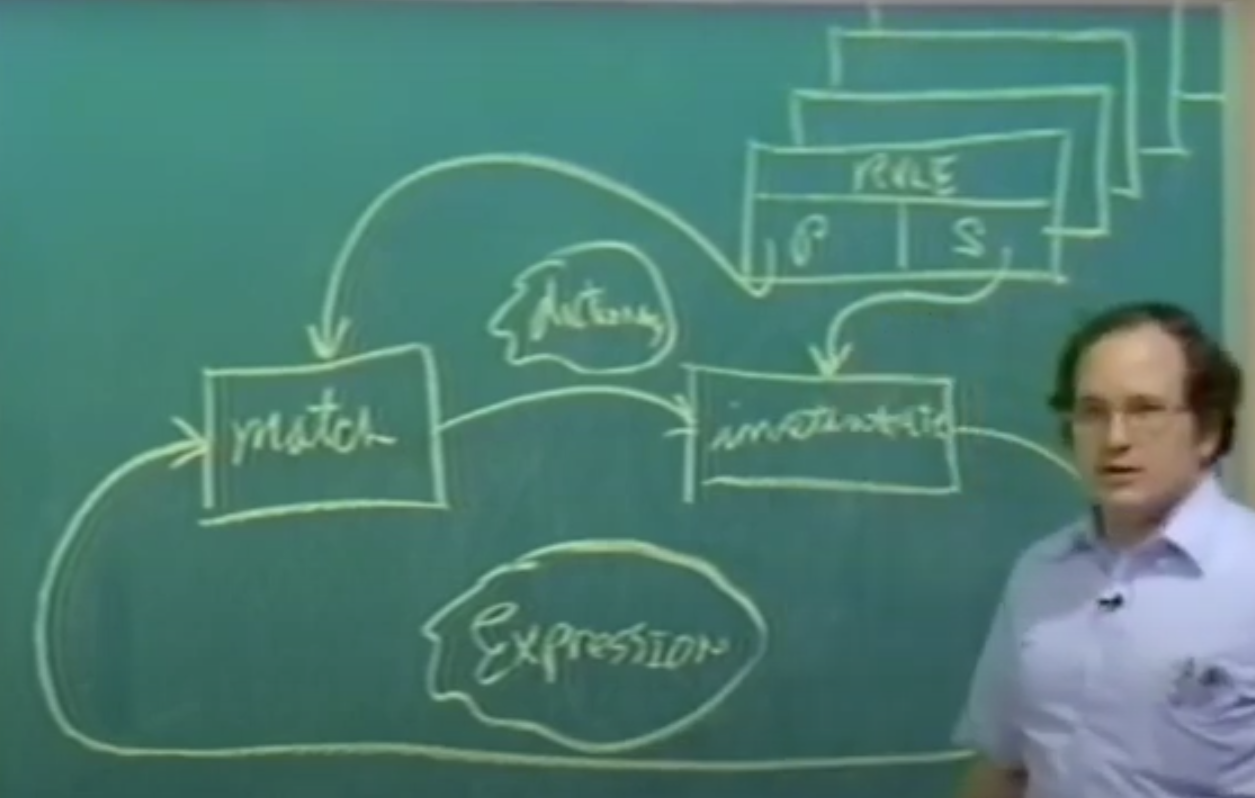 RULE
P S
dictionary
match
instantiate
Expression